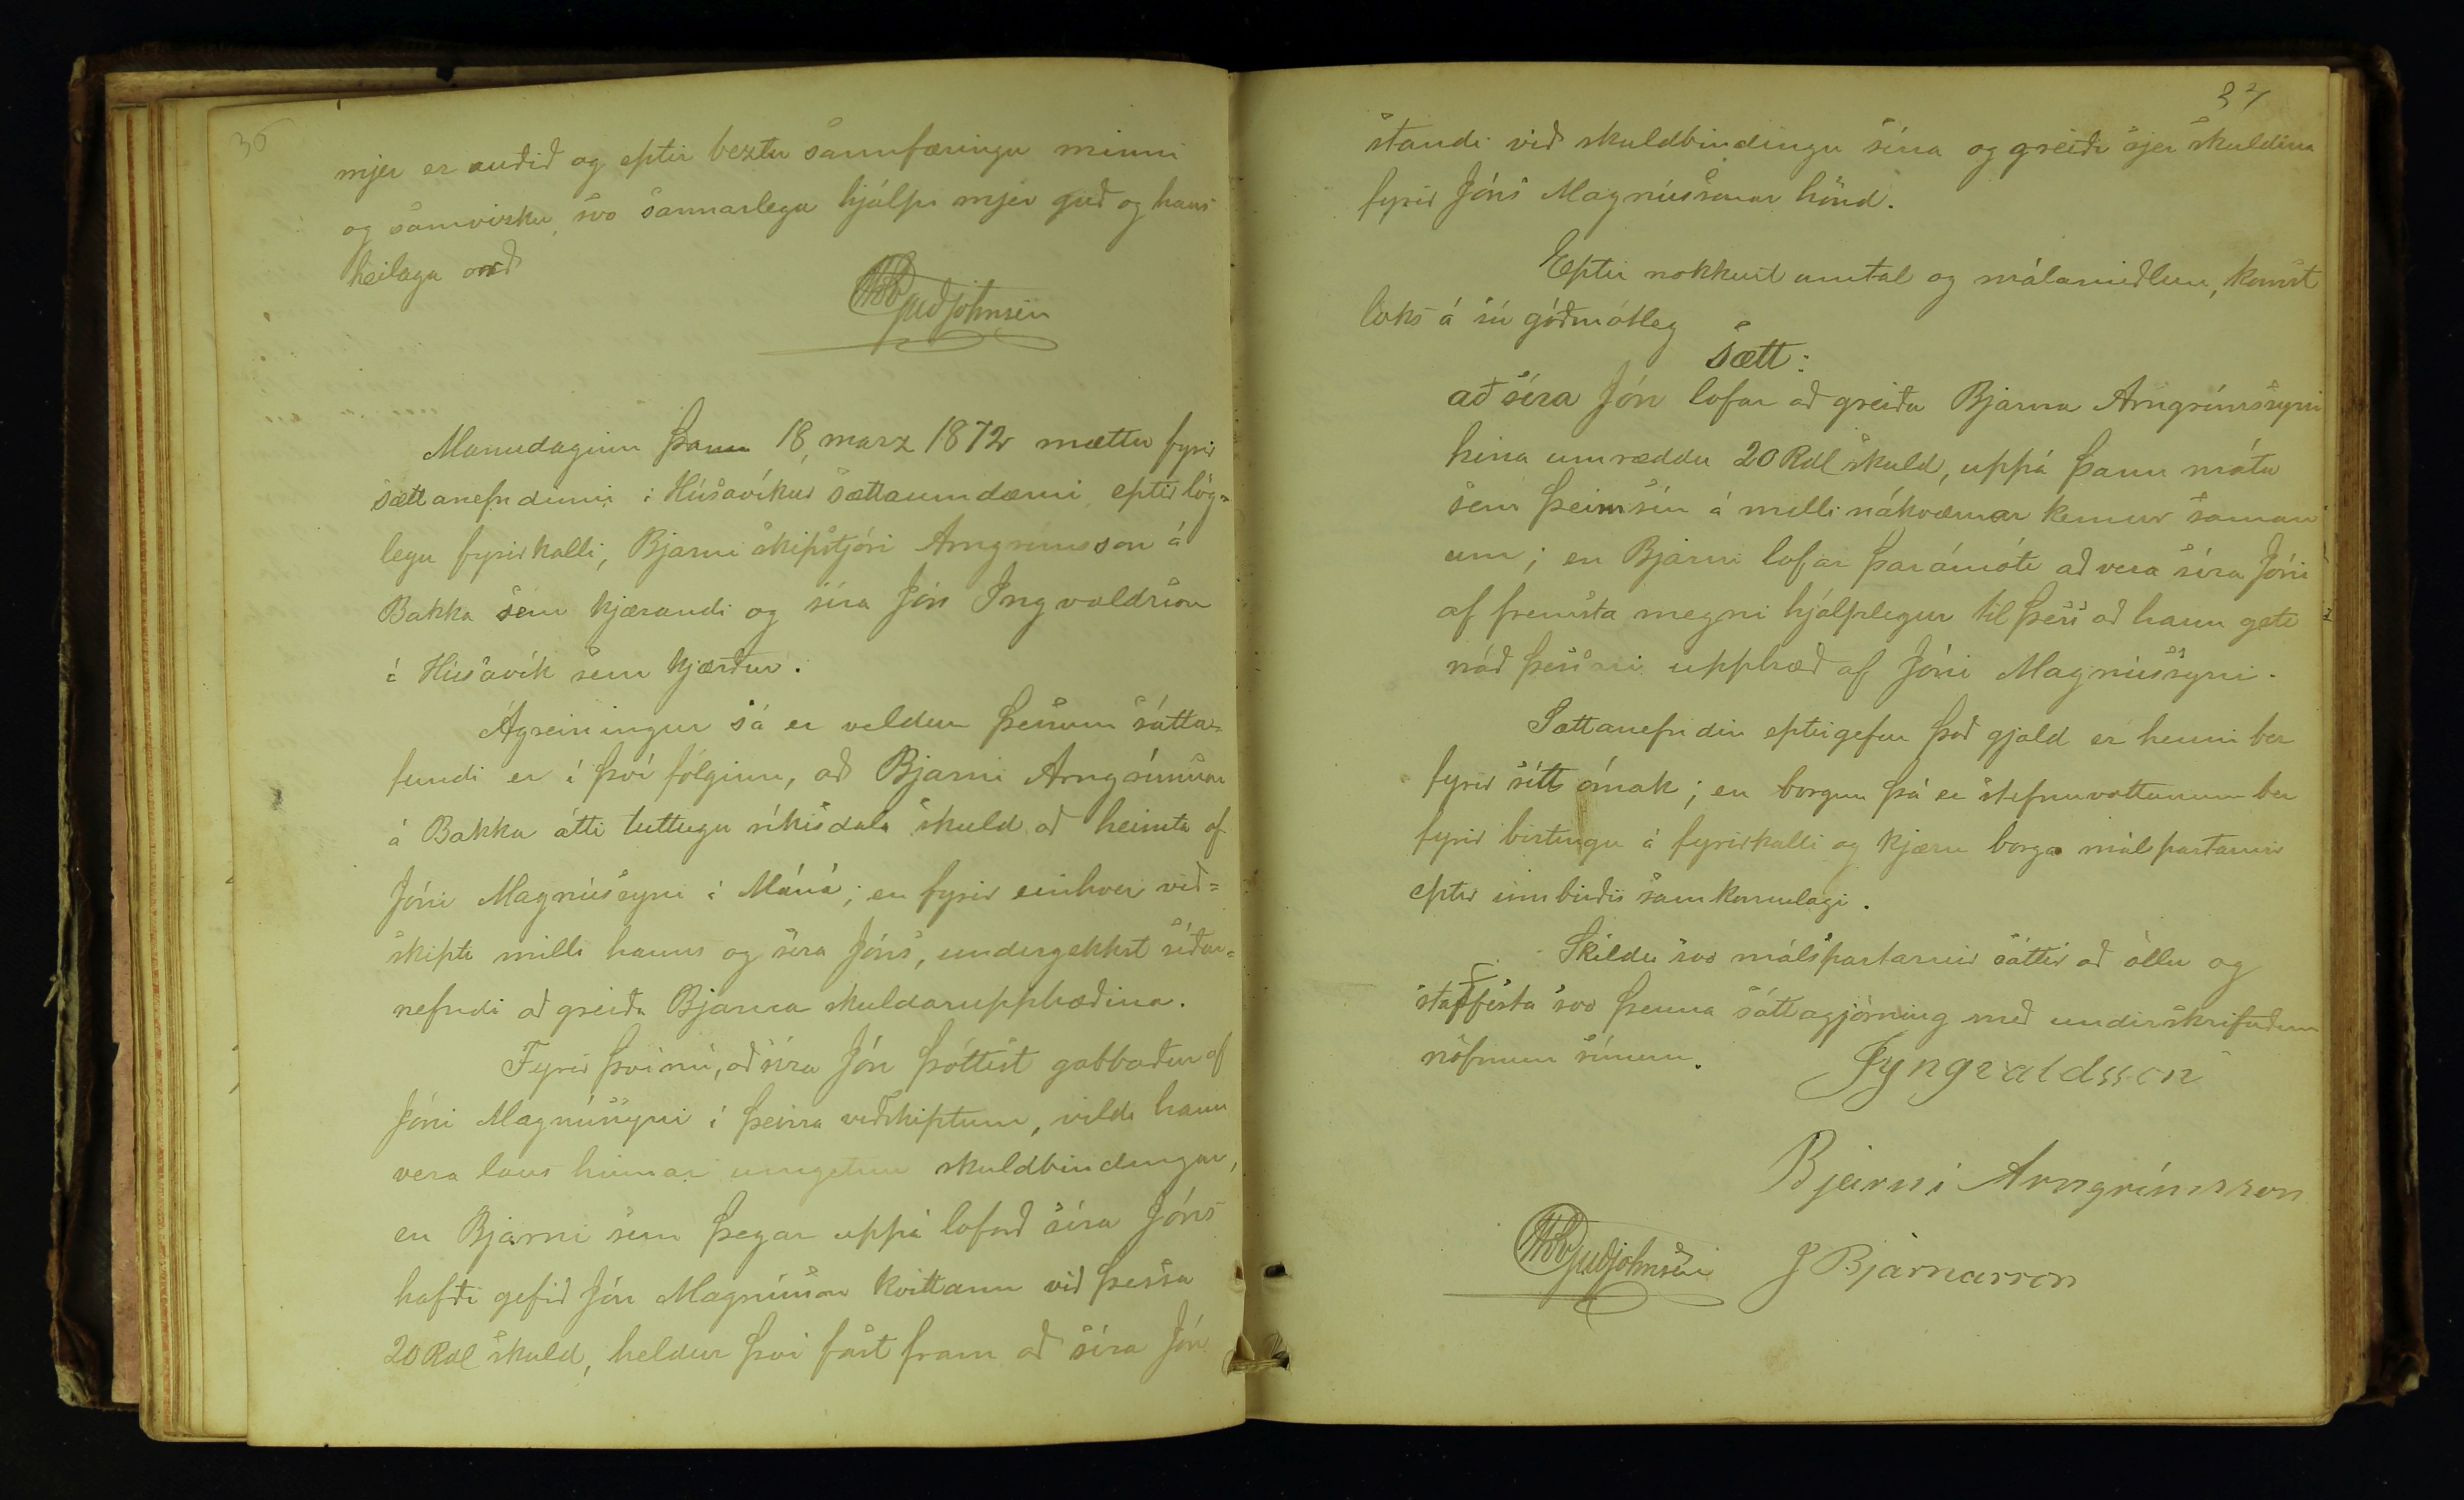 36
mjer er auðið og eptir beztu sannfæringu minni
og samvizku, svo sannarlega hjálpi mjer guð og hans
heilaga orð
Guðjohnsen
Manudaginn þann 18. marz 1872 mættu fyrir
sættanefndinni í Húsavíkur sættaumdæmi eptir lög=
legu fyrirkalli, Bjarni skipstjóri Arngrímsson á
Bakka sem kjærandi og síra Jón Ingvaldsson
í Húsavík sem kjærður.
Ágreiningur sá er veldur þessum sátta=
fundi er í því fólginn, að Bjarni Arngrímsson
á Bakka átti tuttugu ríkisdala skuld að heimta af
Jóni Magnússyni í Máná; en fyrir einhver við=
skipti milli hanns og síra Jóns, undergekkst síðar=
nefndi að greiða Bjarna skuldarupphæðina.
Fyrir því nú, að síra Jón þóttist gabbaður af
Jóni Magnússyni í þeirra viðskiptum, vildi hann
vera laus hinnar umgetnu skuldbindingar,
en Bjarni sem þegar uppá loforð síra Jóns
hafði gefið Jón Magnússon kvittann við þessa
20 Rdl skuld, heldur því fast fram að síra Jón
37
standi við skuldbindingu sína og greiði sjer skuldina
fyrir Jóns Magnússonar hönd.
Eptir nokkurt umtal og málamiðlun, komst
loks á sú góðmótleg
sætt:
að síra Jón lofar að greiða Bjarna Arngrímssyni
hina umræddu 20 Rdl skuld, uppá þann máta
sem þeim sín á milli nákvæmar kemur saman
um; en Bjarni lofar þarámóti að vera síra Jóni
af fremsta megni hjálplegur til þess að hann geti
náð þessari upphæð af Jóni Magnússyni.
Sættanefndin eptirgefur það gjald er henni ber
fyrir sitt ómak; en borgun þá er stefnuvottunum ber
fyrir birtingu á fyrirkalli og kjæru borga málspartarnir
eptir innbirðis samkomulagi.
Skildu svo málspartarnir sáttir að öllu og
staðfesta svo þenna sáttagjörning með underskrifuðum
nöfnum sínum.
JYngvaldsson
Bjarni Arngrímsson
Guðjohnsen
J Bjarnarson